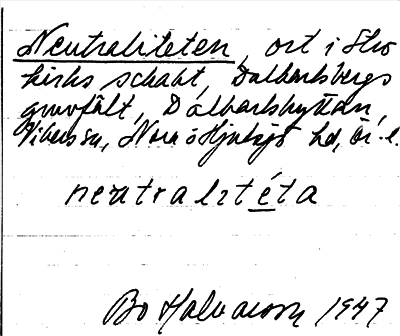 Neutraliteten, ort i
kirks schakt, Dalkarlsbergs
gruvfält, Dalkarlshyttan,
Vikers sn, Nora o Hjulsjö hd, ör. l.
neutralitéta
Bo Halvarson 1947